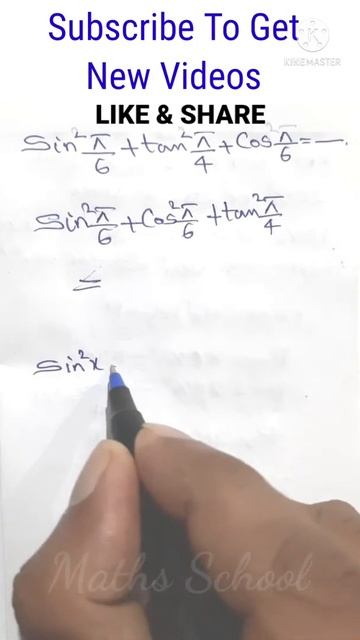 Subscribe To Get
KINEMASTER
New Videos
LIKE & SHARE
Sin² π/6 + tan² π/4 + Cos² π/6 = —.
Sin² π/6 + Cos² π/6 + tan² π/4
=
Sin²x
Maths School